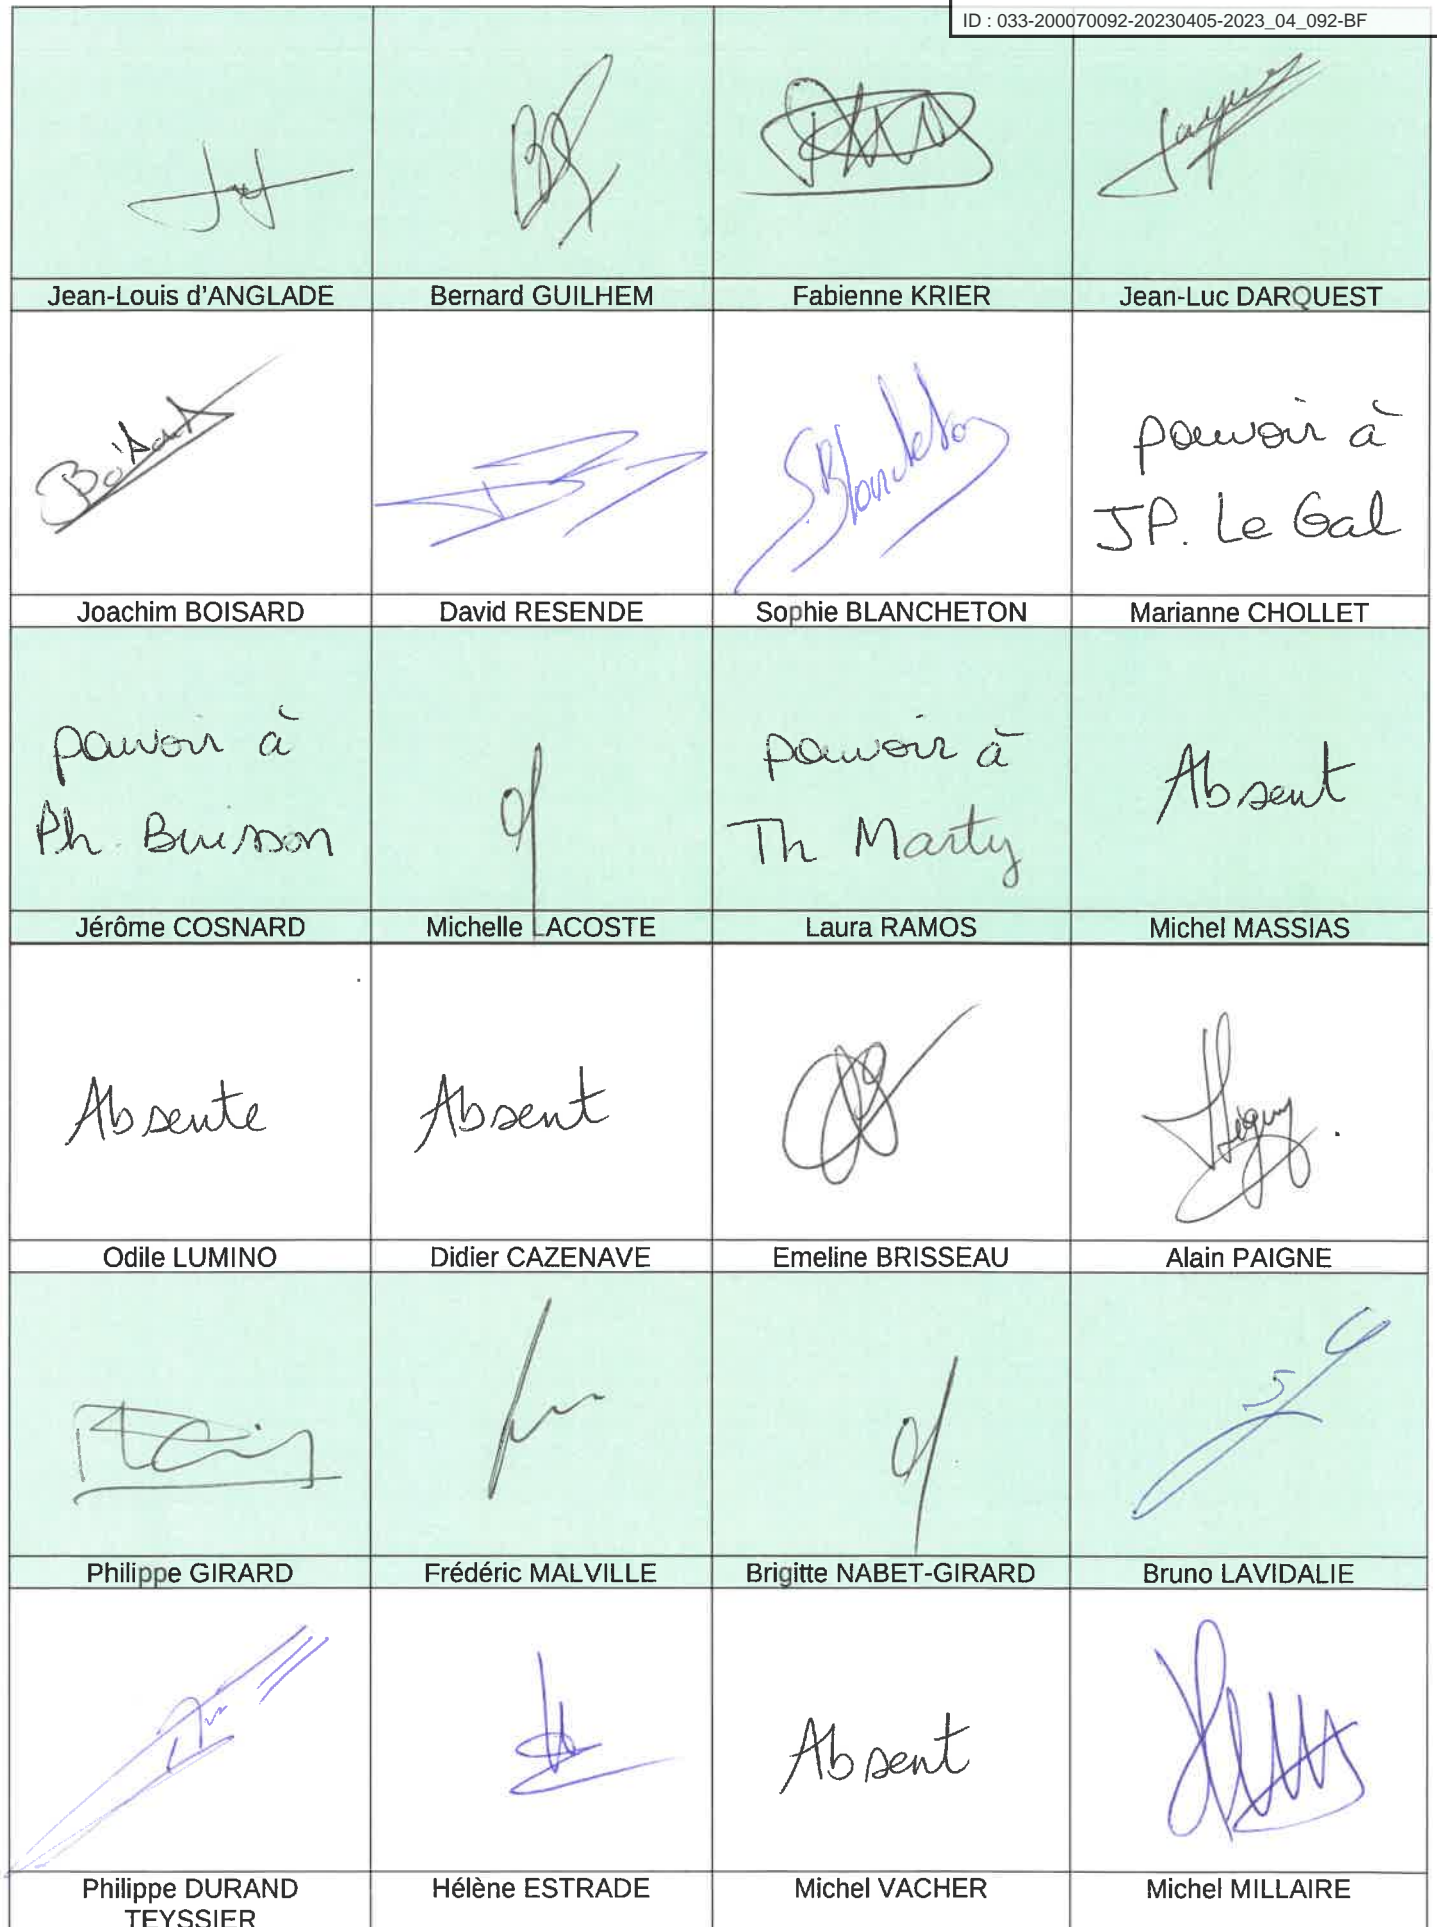 ID : 033-200070092-20230405-2023_04_092-BF
Jean-Louis d'ANGLADE
Bernard GUILHEM
Fabienne KRIER
Jean-Luc DARQUEST
Boisard
S.Blancheton
pouvoir à
JP. Le Gal
Joachim BOISARD
David RESENDE
Sophie BLANCHETON
Marianne CHOLLET
pouvoir à
Ph. Buisson
pouvoir à
Th Marty
Absent
Jérôme COSNARD
Michelle LACOSTE
Laura RAMOS
Michel MASSIAS
Absente
Absent
Odile LUMINO
Didier CAZENAVE
Emeline BRISSEAU
Alain PAIGNE
Philippe GIRARD
Frédéric MALVILLE
Brigitte NABET-GIRARD
Bruno LAVIDALIE
Absent
Philippe DURAND
TEYSSIER
Hélène ESTRADE
Michel VACHER
Michel MILLAIRE